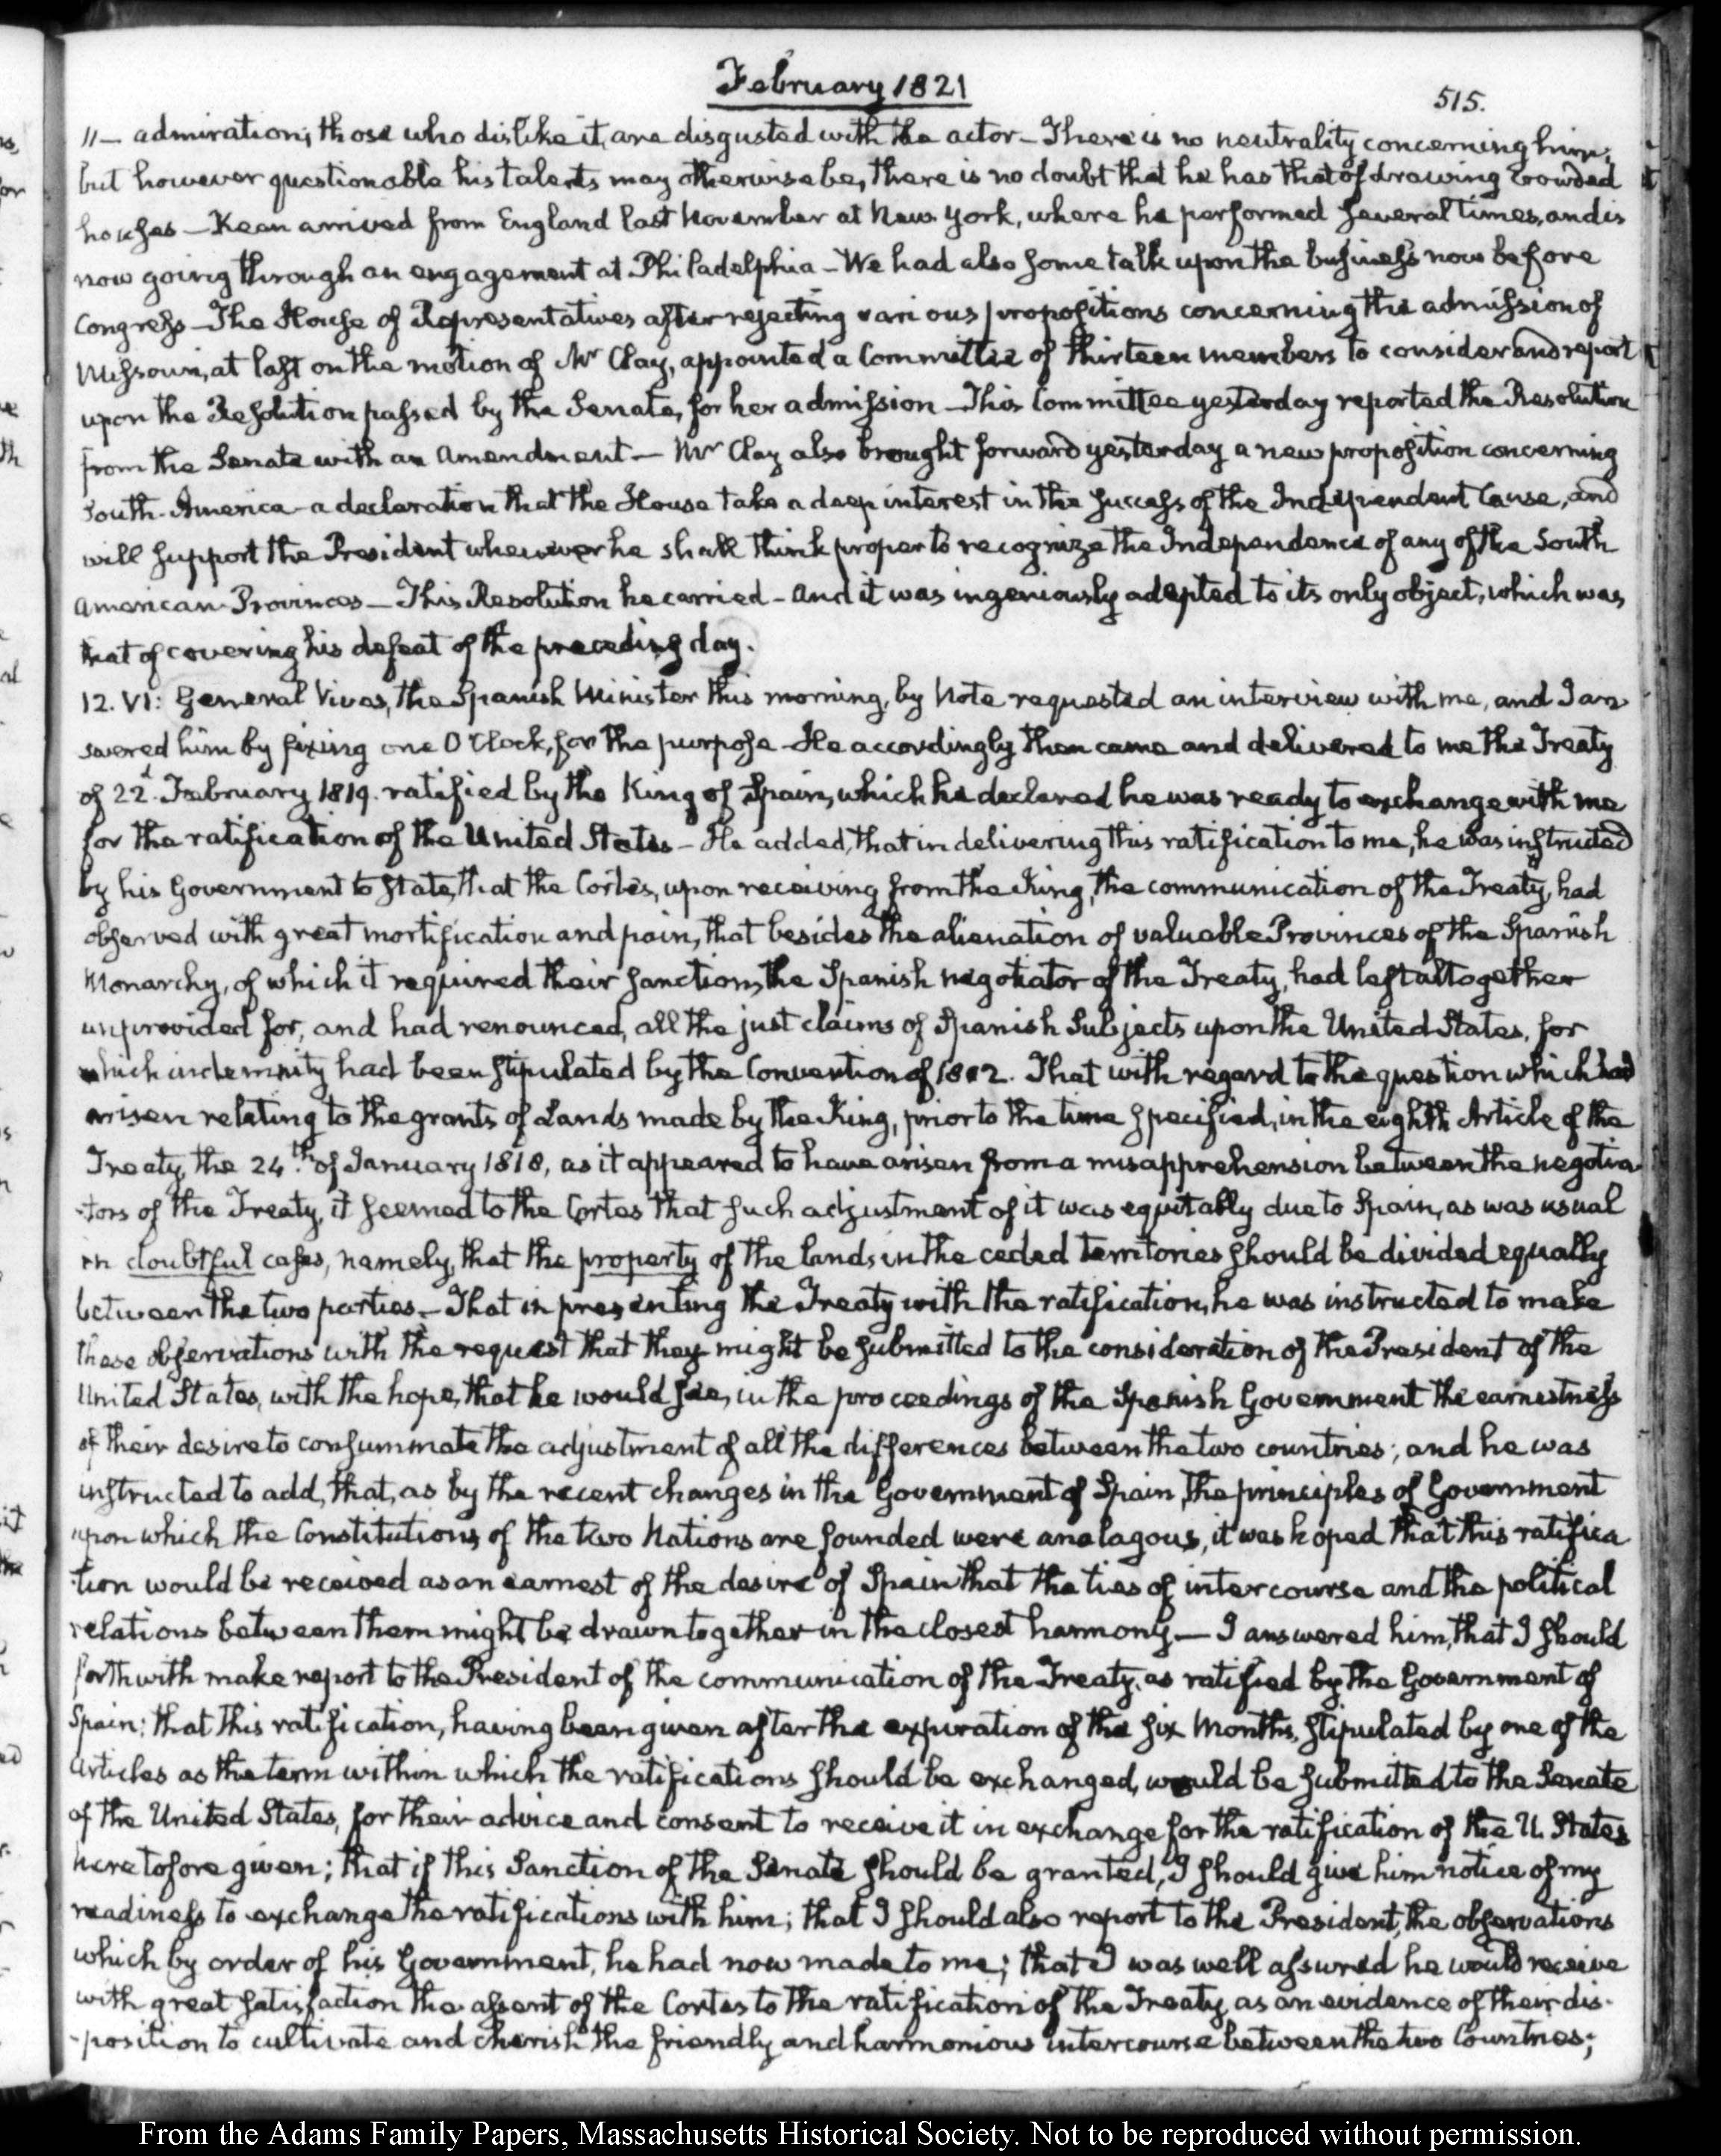 February 1821
515.
11— admiration; those who dislike it, are disgusted with the actor— There is no neutrality concerning him;
but however questionable his talents may otherwise be, there is no doubt that he has that of drawing Crowded
houses— Kean arrived from England last November at New York, where he performed several times, and is
now going through an engagement at Philadelphia— We had also some talk upon the business now before
Congress— The House of Representatives after rejecting various propositions concerning the admission of
Missouri, at last on the motion of Mr Clay, appointed a Committee of thirteen members to consider and report
upon the Resolution passed by the Senate, for her admission— This Committee yesterday reported the Resolution
from the Senate with an Amendment— Mr Clay also brought forward yesterday a new proposition concerning
South-America— a declaration that the House take a deep interest in the success of the Independent Cause, and
will support the President whenever he shall think proper to recognize the Independence of any of the South
American Provinces— This Resolution he carried— And it was ingeniously adapted to its only object, which was
that of covering his defeat of the preceding day.
12. VI: General Vives, the Spanish Minister this morning, by Note requested an interview with me, and I an
swered him by fixing one O'Clock, for the purpose— He accordingly then came and delivered to me the Treaty
of 22d. February 1819. ratified by the King of Spain, which he declared he was ready to exchange with me
for the ratification of the United States— He added, that in delivering this ratification to me, he was instructed
by his Government to state, that the Cortes, upon receiving from the King, the communication of the Treaty, had
observed with great mortification and pain, that besides the alienation of valuable Provinces of the Spanish
Monarchy, of which it required their sanction, the Spanish negotiator of the Treaty, had left altogether
unprovided for, and had renounced, all the just claims of Spanish Subjects upon the United States, for
which indemnity had been stipulated by the Convention of 1802. That with regard to the question which had
arisen relating to the grants of Lands made by the King, prior to the time specified, in the eighth Article of the
Treaty, the 24th. of January 1818, as it appeared to have arisen from a misapprehension between the negotia
-tors of the Treaty, it seemed to the Cortes that such adjustment of it was equitably due to Spain, as was usual
in doubtful cases, namely, that the property of the lands in the ceded territories should be divided equally
between the two parties.— That in presenting the Treaty with the ratification, he was instructed to make
these observations with the request that they might be submitted to the consideration of the President of the
United States, with the hope, that he would see, in the proceedings of the Spanish Government the earnestness
of their desire to consummate the adjustment of all the differences between the two countries; and he was
instructed to add, that, as by the recent changes in the Government of Spain, the principles of Government
upon which the Constitutions of the two Nations are founded were analagous, it was hoped that this ratifica
-tion would be received as an earnest of the desire of Spain that the ties of intercourse and the political
relations between them might be drawn together in the closest harmony— I answered him, that I should
forthwith make report to the President of the communication of the Treaty, as ratified by the Government of
Spain: that this ratification, having been given after the expiration of the six Months, stipulated by one of the
Articles as the term within which the ratifications should be exchanged, would be submitted to the Senate
of the United States, for their advice and consent to receive it in exchange for the ratification of the U. States
heretofore given; that if this Sanction of the Senate should be granted, I should give him notice of my
readiness to exchange the ratifications with him; that I should also report to the President, the observations
which by order of his Government, he had now made to me; that I was well assured he would receive
with great satisfaction the assent of the Cortes to the ratification of the Treaty, as an evidence of their dis-
-position to cultivate and cherish the friendly and harmonious intercourse between the two Countries;
From the Adams Family Papers, Massachusetts Historical Society. Not to be reproduced without permission.